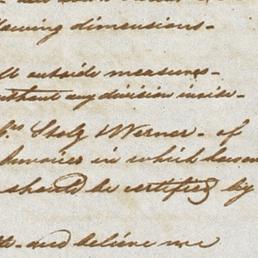 dimensions -
outside measures -
without any division inside -
Stolz Werner - of
in which
should be certified by
and believe me